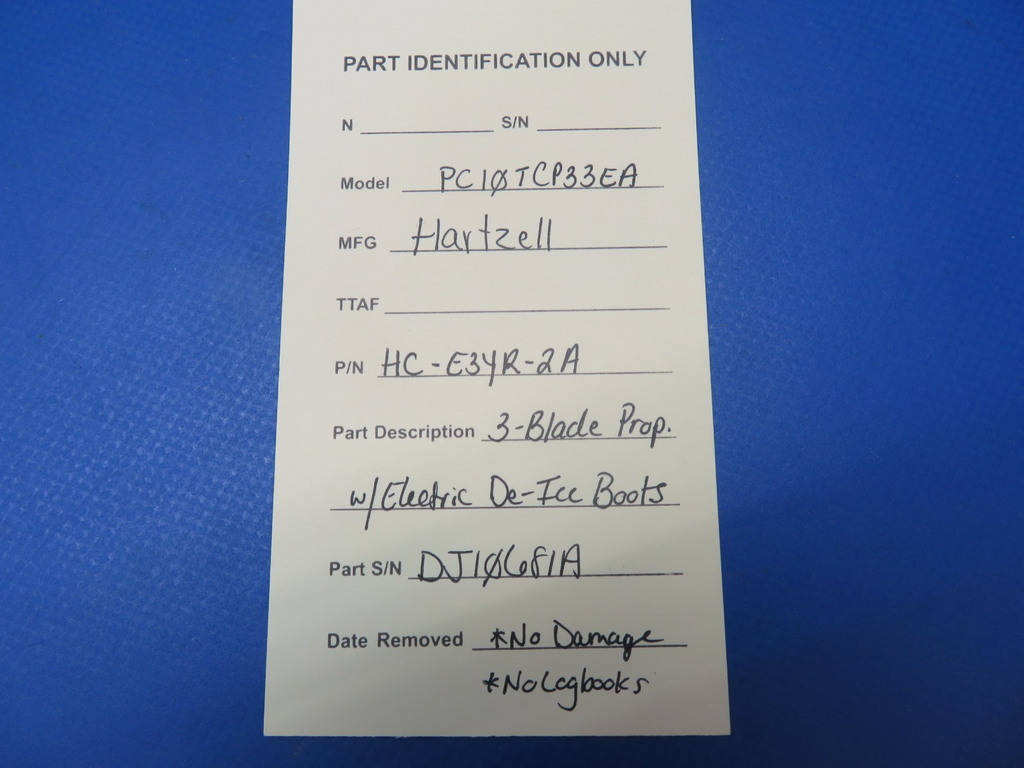 PART IDENTIFICATION ONLY
N ____________ S/N ____________
Model PC10TCP33EA
MFG Hartzell
TTAF ____________
P/N HC-E3YR-2A
Part Description 3-Blade Prop.
w/Electric De-Ice Boots
Part S/N DJ10681A
Date Removed *No Damage
*No Logbooks